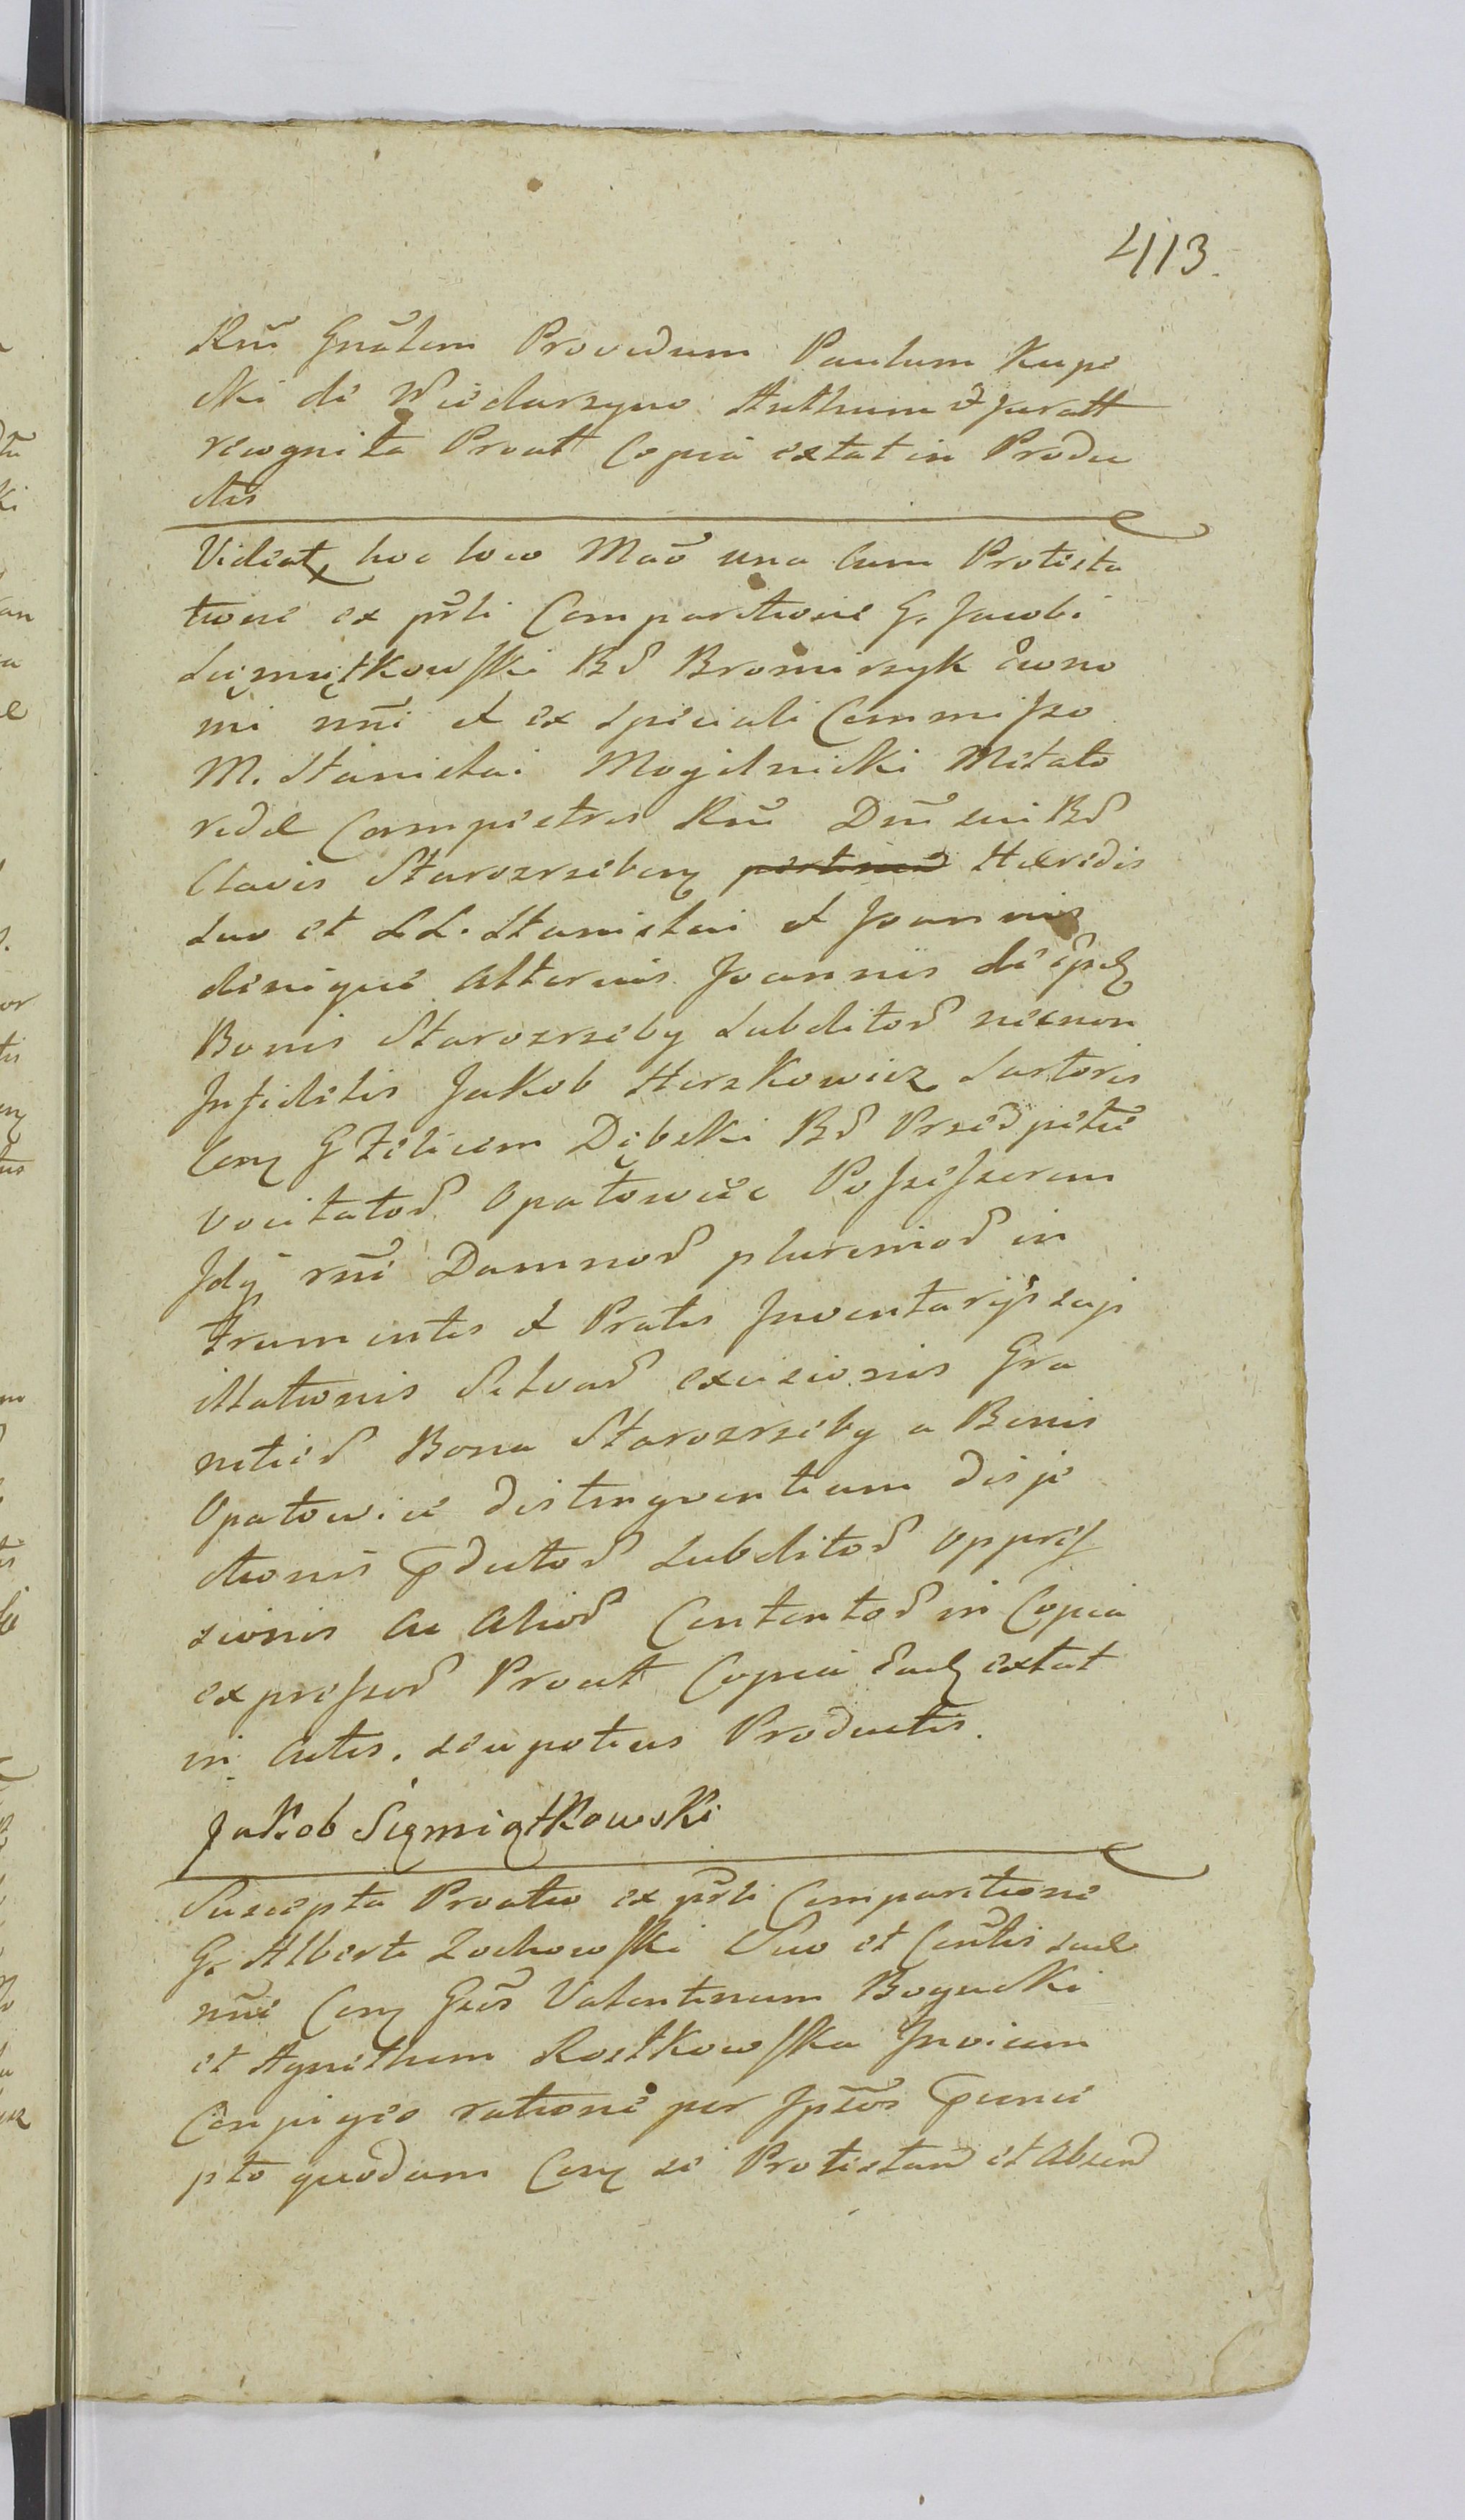 413.
Rm̃ Gnãlem Providum Paulum Kupe
cki de Wiedarzyno Authum & Juratt
recognita Prout Copia extat in Produ
ctis
Videat hoc loco Mãõ una Cum Protesta
tione ex prli Comparitione G. Jacobi
Sięmiątkowski Bd Bromirzyk Œwno
mi nni et ex speciali Commisso
M. Stanislai Mogilnicki Metato
ris Campestris Rm̃ Dm̃ sui Bd
Clavis Starozrzeby Haeredis
suo et LL. Stanislai et Joannis
denique alterius Joannis de
Bonis Starozrzeby Subditod necnon
Infidelis Jakob Herzkowicz Sartoris
Con G Felicem Dębski Bd Przedpełce
vocitatod Opatowiec Possessorem
Idq rñe Damnod pluremod in
Frumentis et Pratis Inventarijs
illationis Silvad excisionis Gra
nicied Bona Starozrzeby a Bonis
Opatowiec distingventium disje
ctionis Subditod oppres
sionis ac aliod Contentod in Copia
expressod Prout Copia extat
in Actis, seu potius Productis.
Jakob Sięmiątkowski
Suscepta Protio ex prli Comparitione
G. Alberti Zochowski Suo et Cõntis suae
nñe Con Gsõs Valentinum Bogucki
et Agnetham Rostkowska Invicem
Conjuges ratione per Ipsõs
pto quodam Con se Protestand et Absend